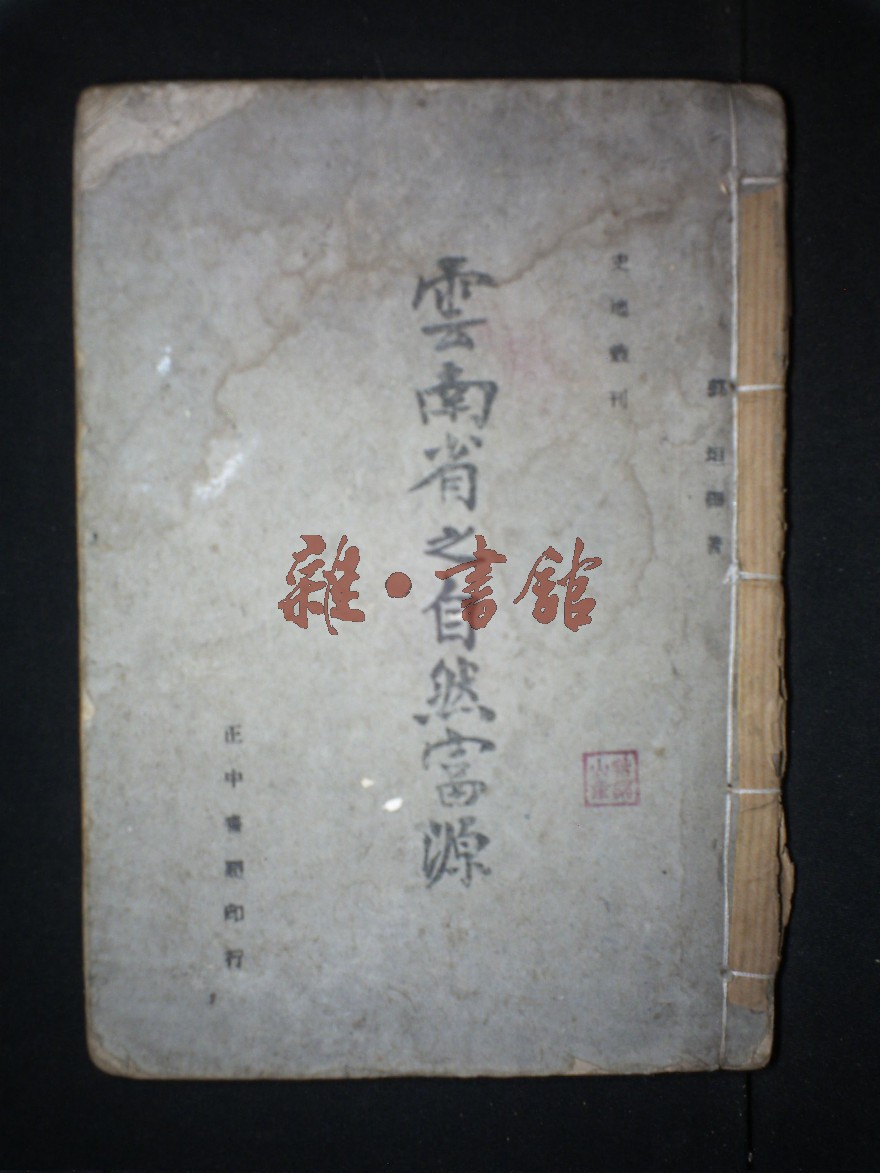 郭垣編著
史地叢刊
雲南省之自然富源
正中書局印行
雜·書館